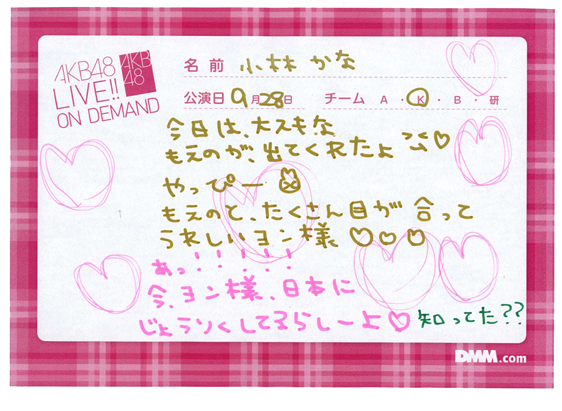 AKB48
LIVE!!
ON DEMAND
AKB
48
名前 小林 かな
公演日 9月28日 チーム A・K・B・研
今日は、大スキな
もえのが、出てくれたよ
やっぴー
もえのと、たくさん目が合って
うれしいヨン様
あっ！！！！！
今、ヨン様、日本に
じょうりくしてるらしーよ
知ってた??
DMM.com